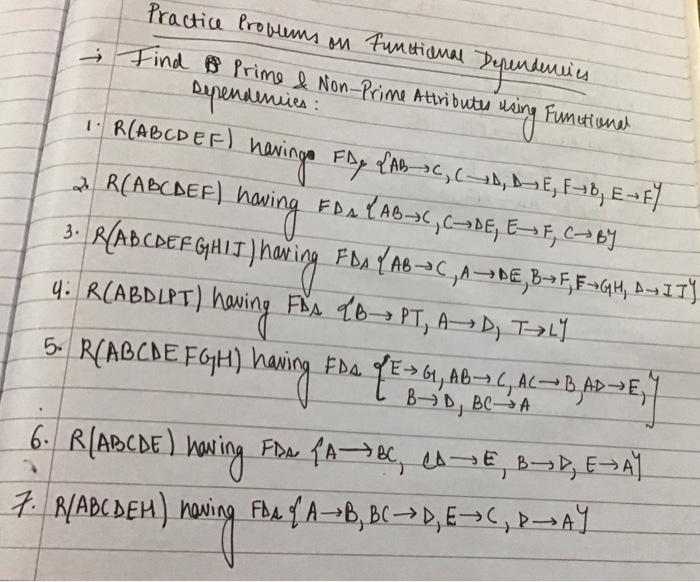 Practice Problems on Functional Dependencies
→ Find Prime & Non-Prime Attributes using Functional
Dependencies:
1. R(ABCDEF) having FDs {AB→C, C→D, D→E, F→B, E→F}
2. R(ABCDEF) having FDs {AB→C, C→DE, E→F, C→B}
3. R(ABCDEFGHIJ) having FDs {AB→C, A→DE, B→F, F→GH, D→IJ}
4. R(ABDLPT) having FDs {B→PT, A→D, T→L}
5. R(ABCDEFGH) having FDs {E→G, AB→C, AC→B, AD→E,
B→D, BC→A}
6. R(ABCDE) having FDs {A→BC, CD→E, B→D, E→A}
7. R(ABCDEH) having FDs {A→B, BC→D, E→C, D→A}